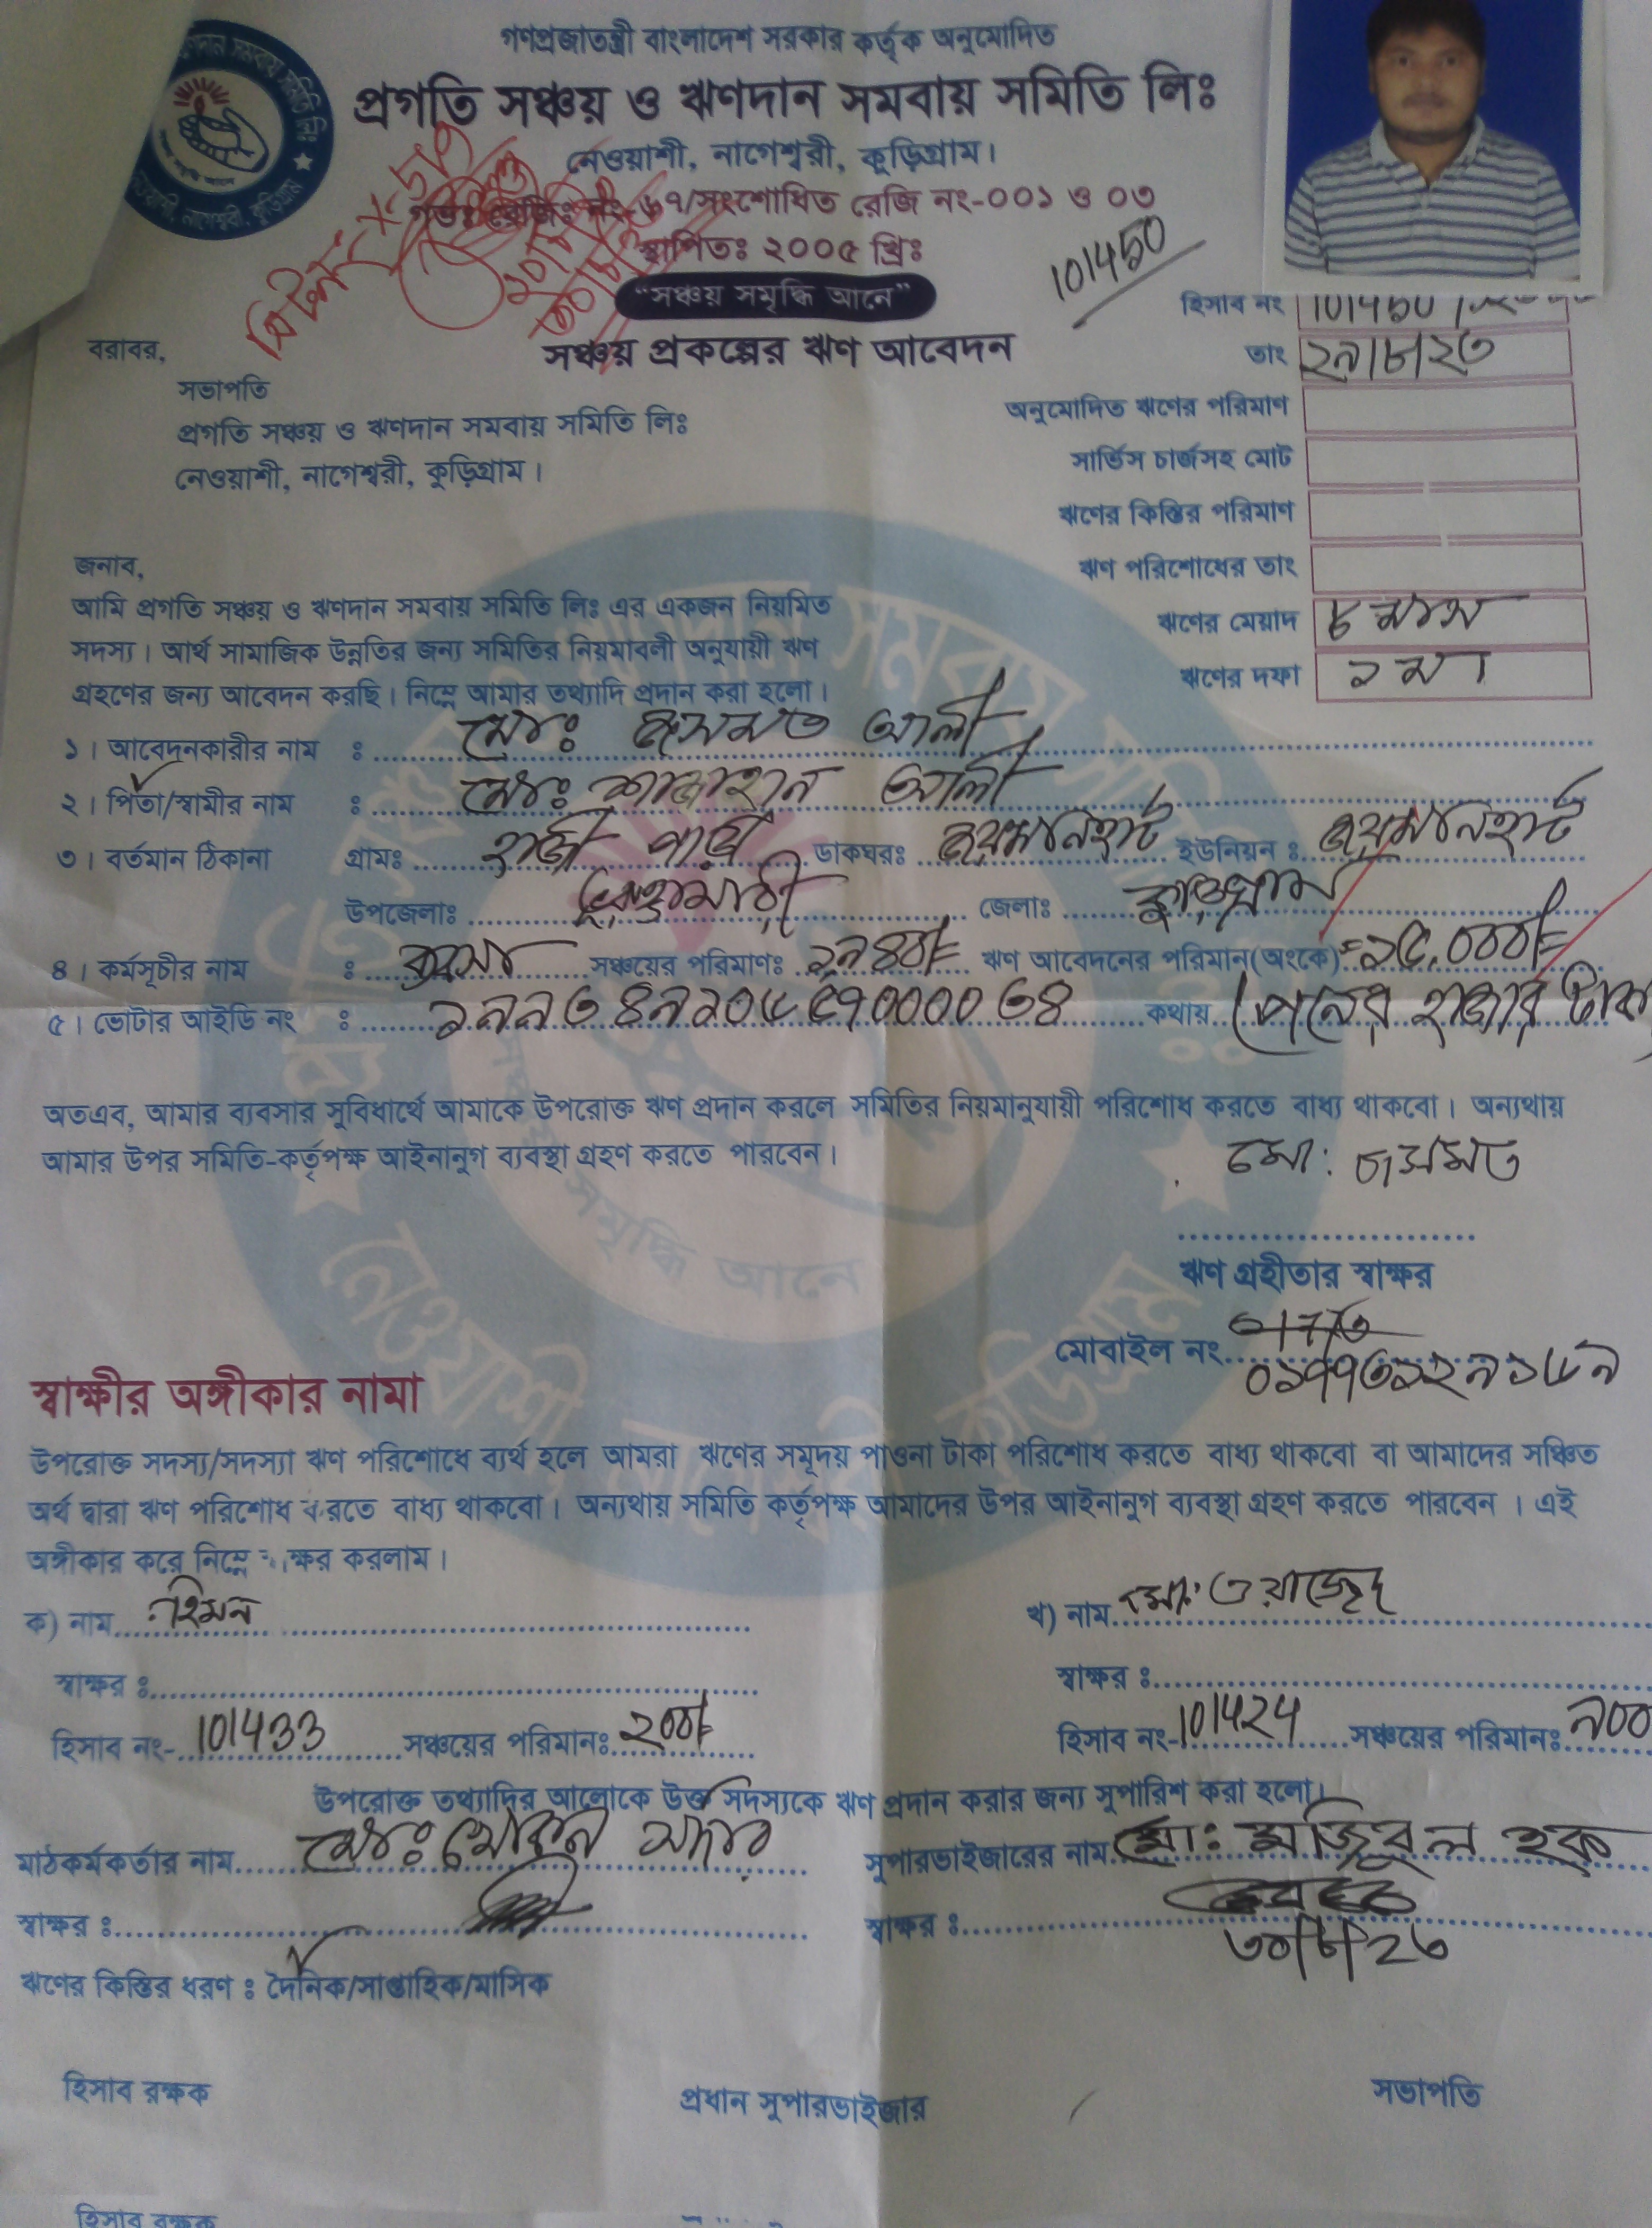 গণপ্রজাতন্ত্রী বাংলাদেশ সরকার কর্তৃক অনুমোদিত
প্রগতি সঞ্চয় ও ঋণদান সমবায় সমিতি লিঃ
নেওয়াশী, নাগেশ্বরী, কুড়িগ্রাম।
গভঃ রেজিঃ নং-৬৭/সংশোধিত রেজি নং-০০১ ও ০৩
স্থাপিতঃ ২০০৫ খ্রিঃ
101450
"সঞ্চয় সমৃদ্ধি আনে"
হিসাব নং 101450
বরাবর, সঞ্চয় প্রকল্পের ঋণ আবেদন তাং ২৯/৮/২৩
সভাপতি
অনুমোদিত ঋণের পরিমাণ
প্রগতি সঞ্চয় ও ঋণদান সমবায় সমিতি লিঃ
সার্ভিস চার্জসহ মোট
নেওয়াশী, নাগেশ্বরী, কুড়িগ্রাম।
ঋণের কিস্তির পরিমাণ
জনাব, ঋণ পরিশোধের তাং
আমি প্রগতি সঞ্চয় ও ঋণদান সমবায় সমিতি লিঃ এর একজন নিয়মিত
ঋণের মেয়াদ ৮ মাস
সদস্য। আর্থ সামাজিক উন্নতির জন্য সমিতির নিয়মাবলী অনুযায়ী ঋণ
ঋণের দফা ১ম
গ্রহণের জন্য আবেদন করছি। নিম্নে আমার তথ্যাদি প্রদান করা হলো।
১। আবেদনকারীর নাম ঃ মোঃ জসমত আলী
২। পিতা/স্বামীর নাম ঃ মোঃ শাজাহান আলী
৩। বর্তমান ঠিকানা গ্রামঃ হাজী পাড়া ডাকঘরঃ জয়মনিহাট ইউনিয়ন ঃ জয়মনিহাট
উপজেলাঃ ভুরুঙ্গামারী জেলাঃ কুড়িগ্রাম
৪। কর্মসূচীর নাম ঃ সঞ্চয়ের পরিমাণঃ ২৯৪০/= ঋণ আবেদনের পরিমান(অংকে)=১৫,০০০/=
৫। ভোটার আইডি নং ঃ ১৯৯৩৪৯১০৬৫৭০০০০৩৪ কথায় (পনের হাজার টাকা
অতএব, আমার ব্যবসার সুবিধার্থে আমাকে উপরোক্ত ঋণ প্রদান করলে সমিতির নিয়মানুযায়ী পরিশোধ করতে বাধ্য থাকবো। অন্যথায়
আমার উপর সমিতি-কর্তৃপক্ষ আইনানুগ ব্যবস্থা গ্রহণ করতে পারবেন।
মো: জসমত
ঋণ গ্রহীতার স্বাক্ষর
মোবাইল নং ০১৭৭৩১২৯১৬৯
স্বাক্ষীর অঙ্গীকার নামা
উপরোক্ত সদস্য/সদস্যা ঋণ পরিশোধে ব্যর্থ হলে আমরা ঋণের সমূদয় পাওনা টাকা পরিশোধ করতে বাধ্য থাকবো বা আমাদের সঞ্চিত
অর্থ দ্বারা ঋণ পরিশোধ করতে বাধ্য থাকবো। অন্যথায় সমিতি কর্তৃপক্ষ আমাদের উপর আইনানুগ ব্যবস্থা গ্রহণ করতে পারবেন । এই
অঙ্গীকার করে নিম্নে স্বাক্ষর করলাম।
ক) নাম খ) নাম মোঃ ওয়াজেদ
স্বাক্ষর ঃ স্বাক্ষর ঃ
হিসাব নং- 101433 সঞ্চয়ের পরিমানঃ ২০০/= হিসাব নং- 101424 সঞ্চয়ের পরিমানঃ ৯০০
উপরোক্ত তথ্যাদির আলোকে উক্ত সদস্যকে ঋণ প্রদান করার জন্য সুপারিশ করা হলো।
মাঠকর্মকর্তার নাম মোঃ সুপারভাইজারের নাম মোঃ মজিবুল হক
স্বাক্ষর ঃ স্বাক্ষর ঃ
৩০/৮/২৩
ঋণের কিস্তির ধরণ ঃ দৈনিক/সাপ্তাহিক/মাসিক
হিসাব রক্ষক প্রধান সুপারভাইজার সভাপতি
হিসাব রক্ষক